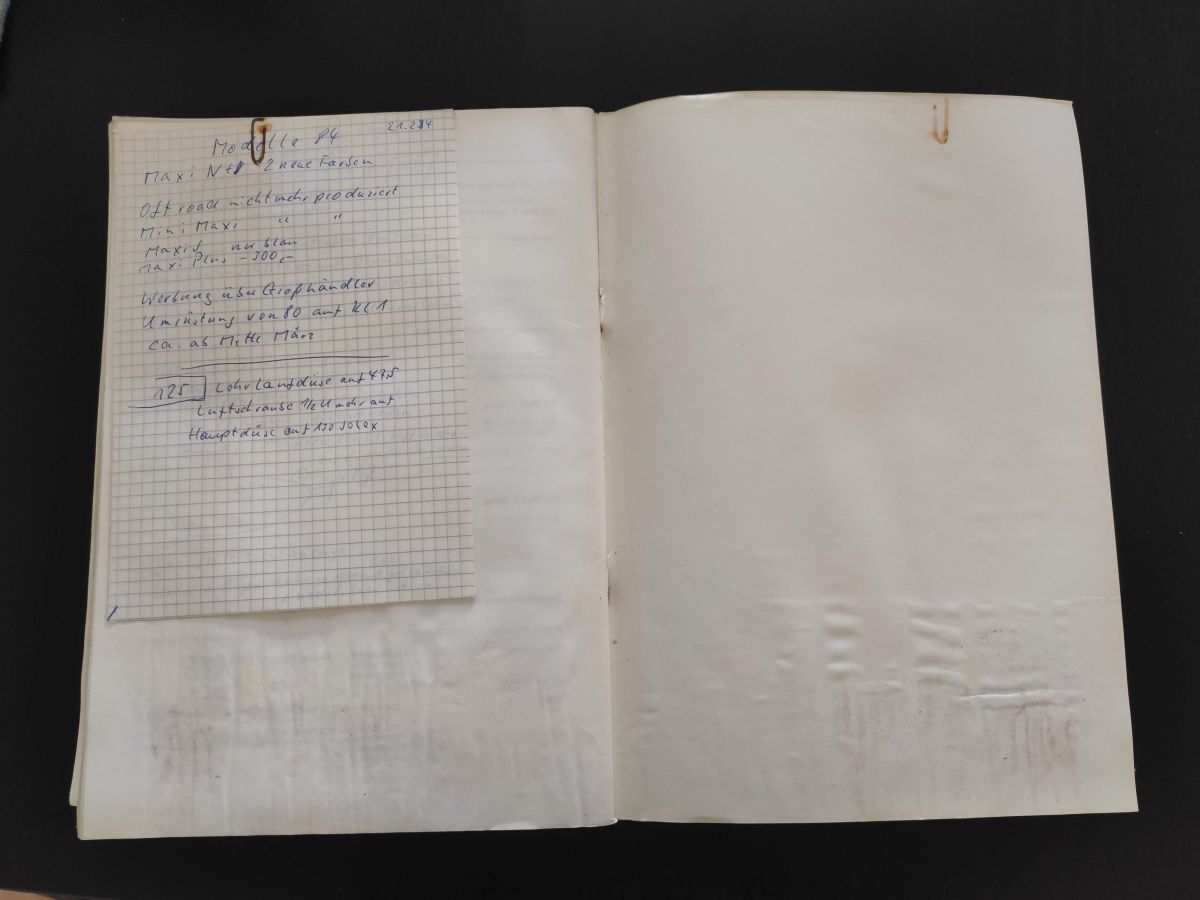 21.2.84
Modelle 84
Maxi N + 2 neue Farben
Off road nicht mehr produziert
Mini Maxi " "
Maxi S nur blau
Maxi Plus - 300,-
Werbung über Großhändler
Umrüstung von 80 auf Kl 1
ca. ab Mitte März
125 Lohr Laufdüse auf 47,5
Luftschraube 1/2 U mehr auf
Hauptdüse auf 130 Solex